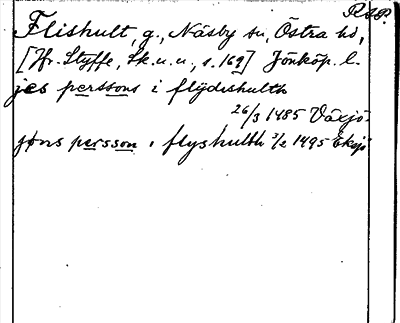 R.A.P.
Flishult, g., Näsby sn, Östra hd,
[Jfr. Styffe, Sk. u. u., s. 169] Jönköp. l.
jes perssons i flydishulth
26/3 1485 Växjö.
jøns persson i flyshulth 3/2 1495 Eksjö